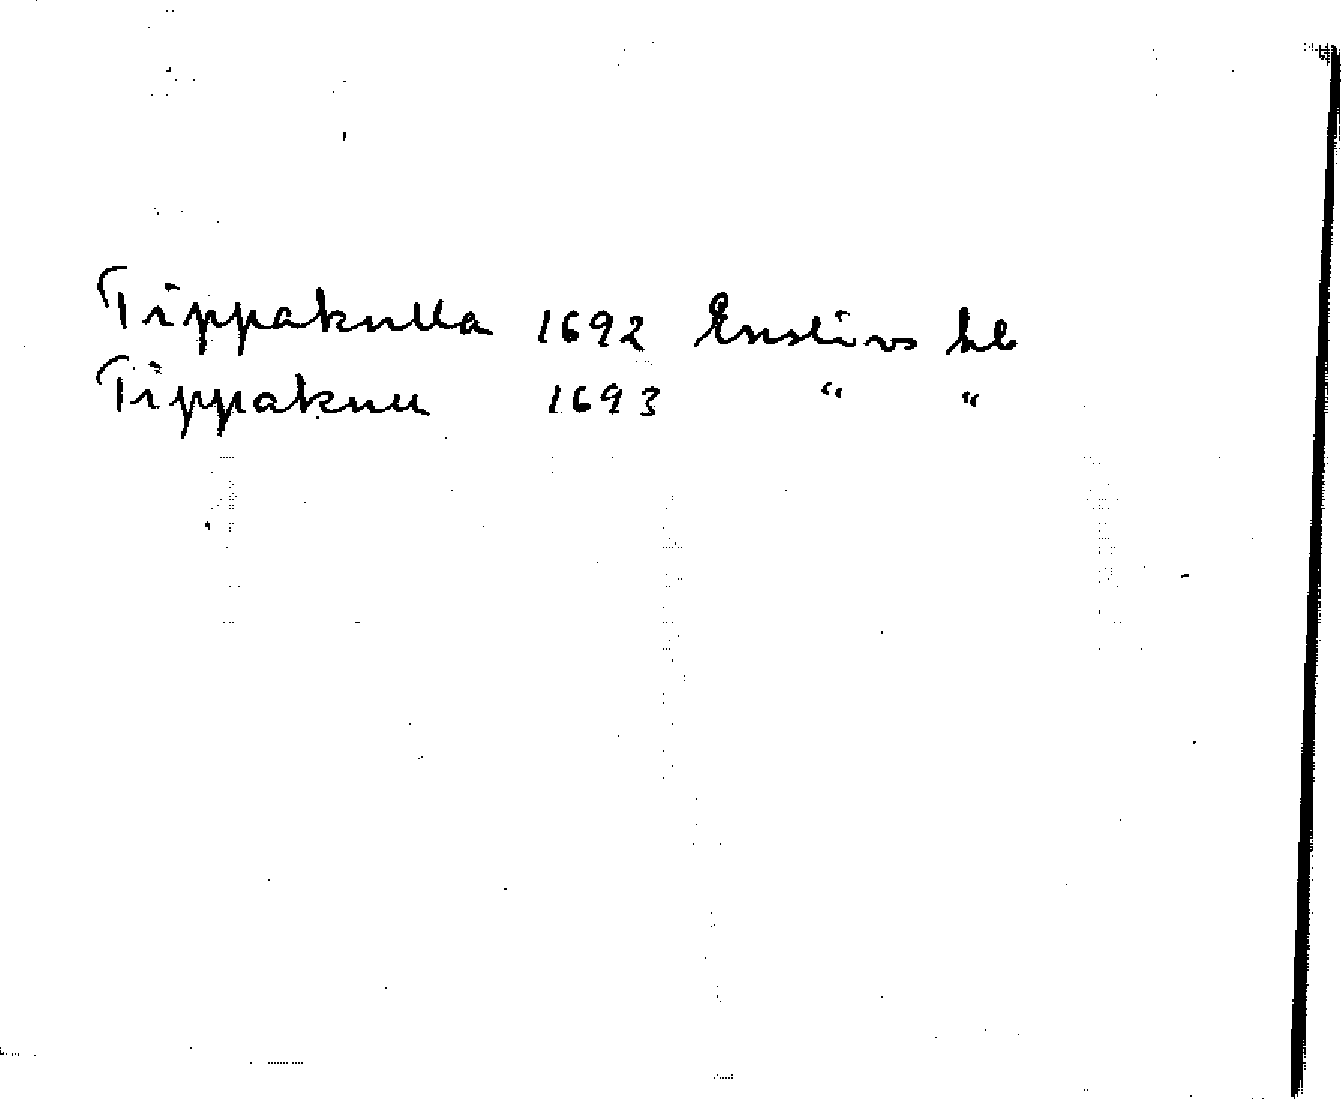 Tippakulla 1692 Enstivs hl
Tippakuu 1693 " "